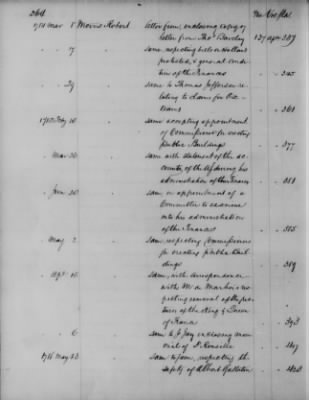 264
No. Vol. Page
1784 Mar 5 Morris Robert letter from, enclosing copy of
letter from Thos Barclay 137 apx 337
" 7 same, respecting bills on Holland
protested, & general condi-
tion of the Finances " 345
" 29 same to Thomas Jefferson re-
lating to Loans for
361
Feby 16 same accepting appointment
of Commissioner for erecting
public Buildings " 377
Mar 30 same with statement of the ac-
counts of the US during his
administration of the Finances 381
June 20 same, on appointment of a
Committee to examine
into his administration
of the Finances 385
May 2 same, respecting Commissioners
for erecting public Buil-
dings " 389
Sept 16 same, with correspondence
with M. de Marbois re-
specting removal of the pic-
tures of the King & Queen
of France 393
" 6 same to J. Jay enclosing memo-
rial of
May 23 same to same, respecting the
safety of Albert Gallatin